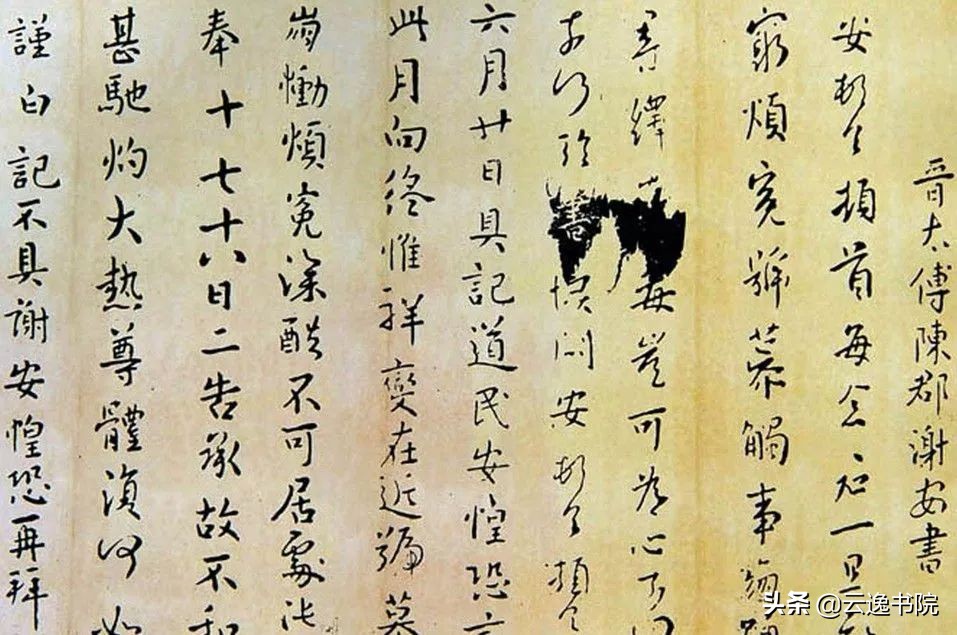 晋太傅陳郡謝安書
安頓首頓首每念君一旦
窮煩冤號慕觸事崩踴
尋繹荼毒豈可為心奈何
奈何臨書悶安頓首頓首
六月廿日具記道民安惶恐言
此月向終惟祥變在近號慕
崩慟煩冤深酷不可居處比
奉十七十八日二告承故不和
甚馳灼大熱尊體復何如
謹白記不具謝安惶恐再拜
头条 @云逸书院